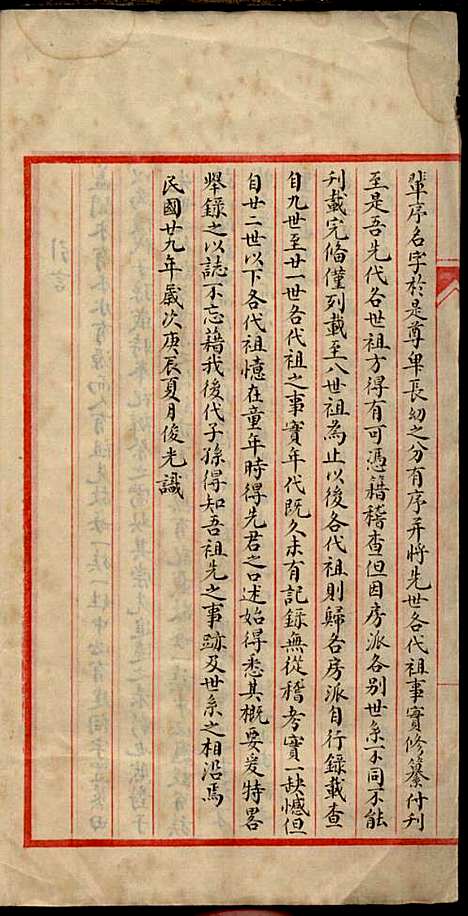 輩序名字於是尊卑長幼之分有序并將先世各代祖事實修纂付刊
至是吾先代各世祖方得有可憑籍稽查但因房派各別世系不同不能
刊載完俻僅列載至八世祖為止以後各代祖則歸各房派自行錄載查
自九世至廿一世各代祖之事實年代既久未有記錄無從稽考實一缺憾但
自廿二世以下各代祖憶在童年時得先君之口述始得悉其概要爰特畧
舉錄之以誌不忘藉我後代子孫得知吾祖先之事跡及世系之相沿焉
民國廿九年歲次庚辰夏月俊光識
引言